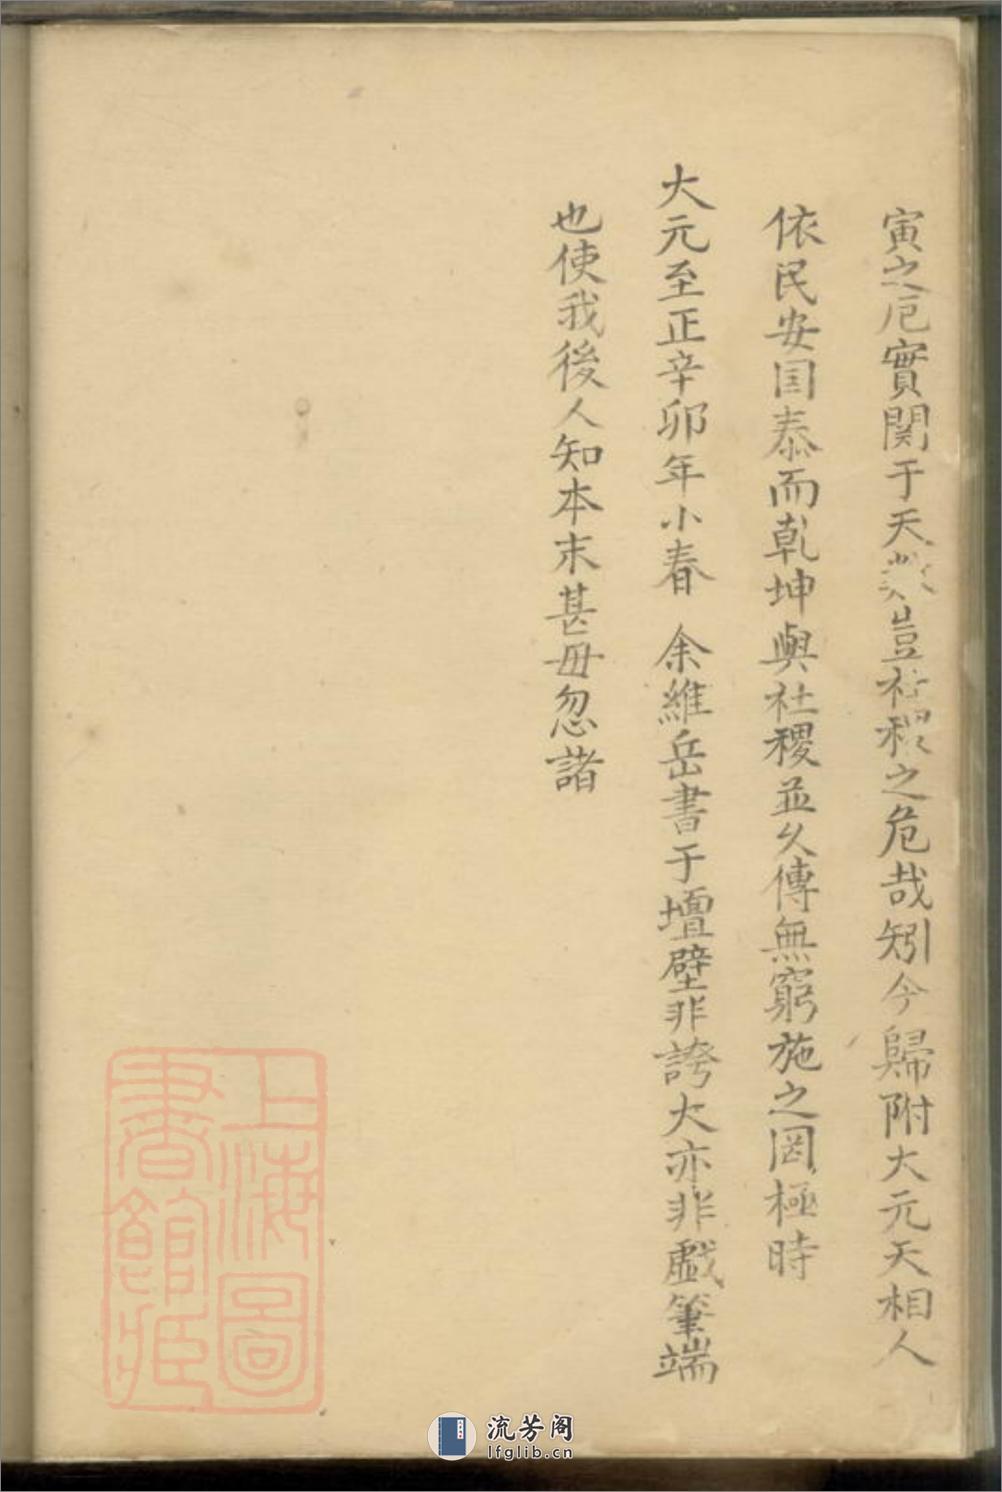 寅之厄實関于天数豈社稷之危哉矧今歸附大元天相人
依民安国泰而乾坤與社稷並久傳無窮施之罔極時
大元至正辛卯年小春 余維岳書于壇壁非誇大亦非戯筆端
也使我後人知本末甚毋忽諸
上海圖
書館藏
流芳阁
lfglib.cn